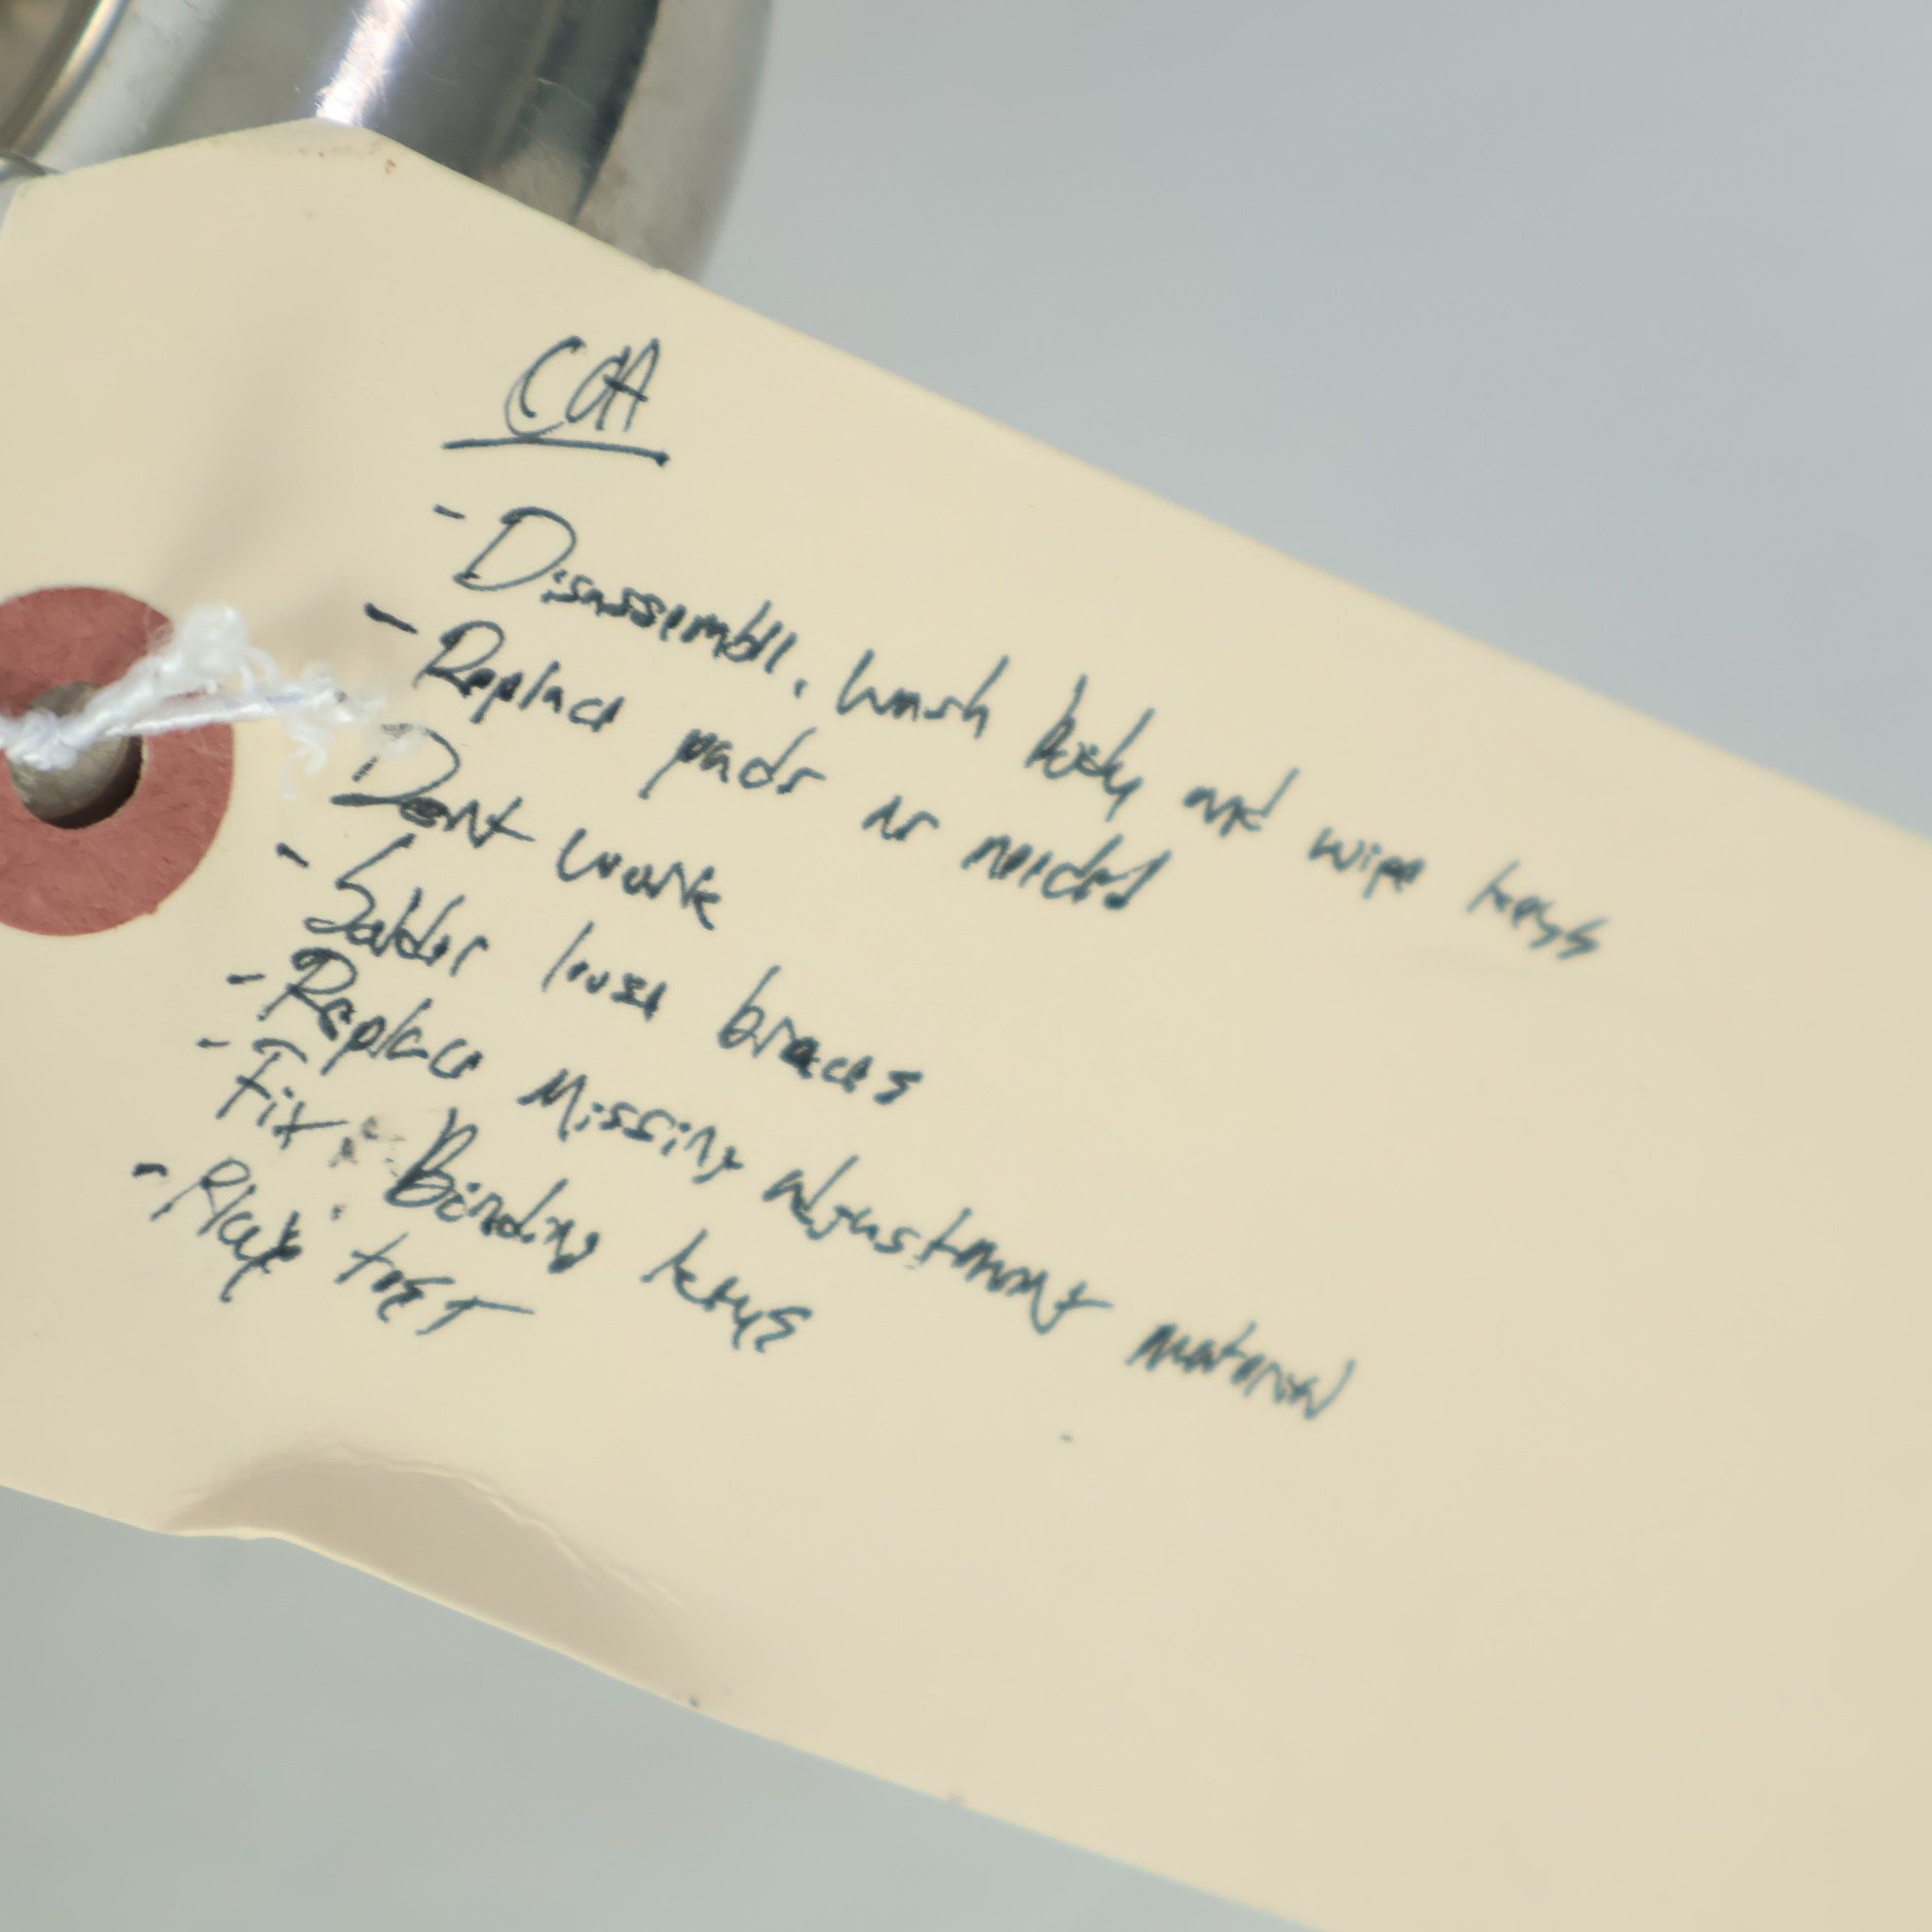 COA
- Disassemble, wash body and wipe keys
- Replace pads as needed
Dent work
- Solder loose braces
- Replace Missing adjustment material
- Fix Binding keys
- Play test